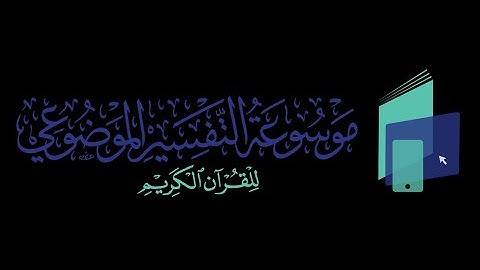 مَوْسُوعَةُ التَّفْسِيرِ المَوْضُوعِي
لِلْقُرْآنِ الْكَرِيمِ